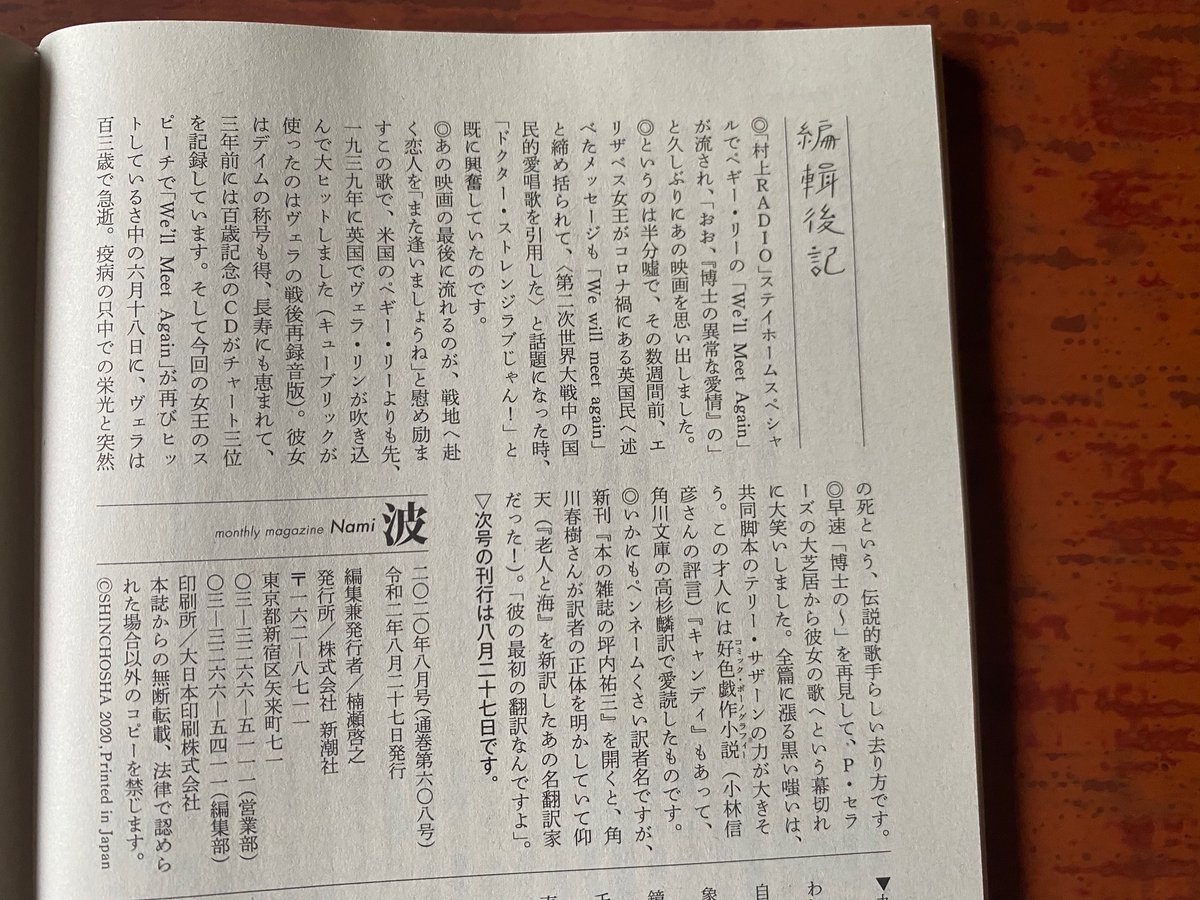 編輯後記
◎「村上RADIO」ステイホームスペシャ
ルでペギー・リーの「We'll Meet Again」
が流され、「おお、『博士の異常な愛情』の」
と久しぶりにあの映画を思い出しました。
◎というのは半分嘘で、その数週間前、エ
リザベス女王がコロナ禍にある英国民へ述
べたメッセージも「We will meet again」
と締め括られて、〈第二次世界大戦中の国
民的愛唱歌を引用した〉と話題になった時、
「ドクター・ストレンジラブじゃん！」と
既に興奮していたのです。
◎あの映画の最後に流れるのが、戦地へ赴
く恋人を「また逢いましょうね」と慰め励ま
すこの歌で、米国のペギー・リーよりも先、
一九三九年に英国でヴェラ・リンが吹き込
んで大ヒットしました（キューブリックが
使ったのはヴェラの戦後再録音版）。彼女
はデイムの称号も得、長寿にも恵まれて、
三年前には百歳記念のCDがチャート三位
を記録しています。そして今回の女王のス
ピーチで「We'll Meet Again」が再びヒッ
トしているさ中の六月十八日に、ヴェラは
百三歳で急逝。疫病の只中での栄光と突然
の死という、伝説的歌手らしい去り方です。
◎早速「博士の～」を再見して、P・セラ
ーズの大芝居から彼女の歌へという幕切れ
に大笑いしました。全篇に漲る黒い嗤いは、
共同脚本のテリー・サザーンの力が大きそ
う。この才人には好色戯作小説（小林信
コミック・ポーノグラフィー
彦さんの評言）『キャンディ』もあって、
角川文庫の高杉麟訳で愛読したものです。
◎いかにもペンネームくさい訳者名ですが、
新刊『本の雑誌の坪内祐三』を開くと、角
川春樹さんが訳者の正体を明かしていて仰
天（『老人と海』を新訳したあの名翻訳家
だった！）。「彼の最初の翻訳なんですよ」。
▽次号の刊行は八月二十七日です。
波
monthly magazine Nami
二〇二〇年八月号（通巻第六〇八号）
令和二年八月二十七日発行
編集兼発行者／楠瀬啓之
発行所／株式会社 新潮社
〒一六二―八七一一
東京都新宿区矢来町七一
〇三―三二六六―五一一一（営業部）
〇三―三二六六―五四一一（編集部）
印刷所／大日本印刷株式会社
本誌からの無断転載、法律で認めら
れた場合以外のコピーを禁じます。
©SHINCHOSHA 2020.Printed in Japan